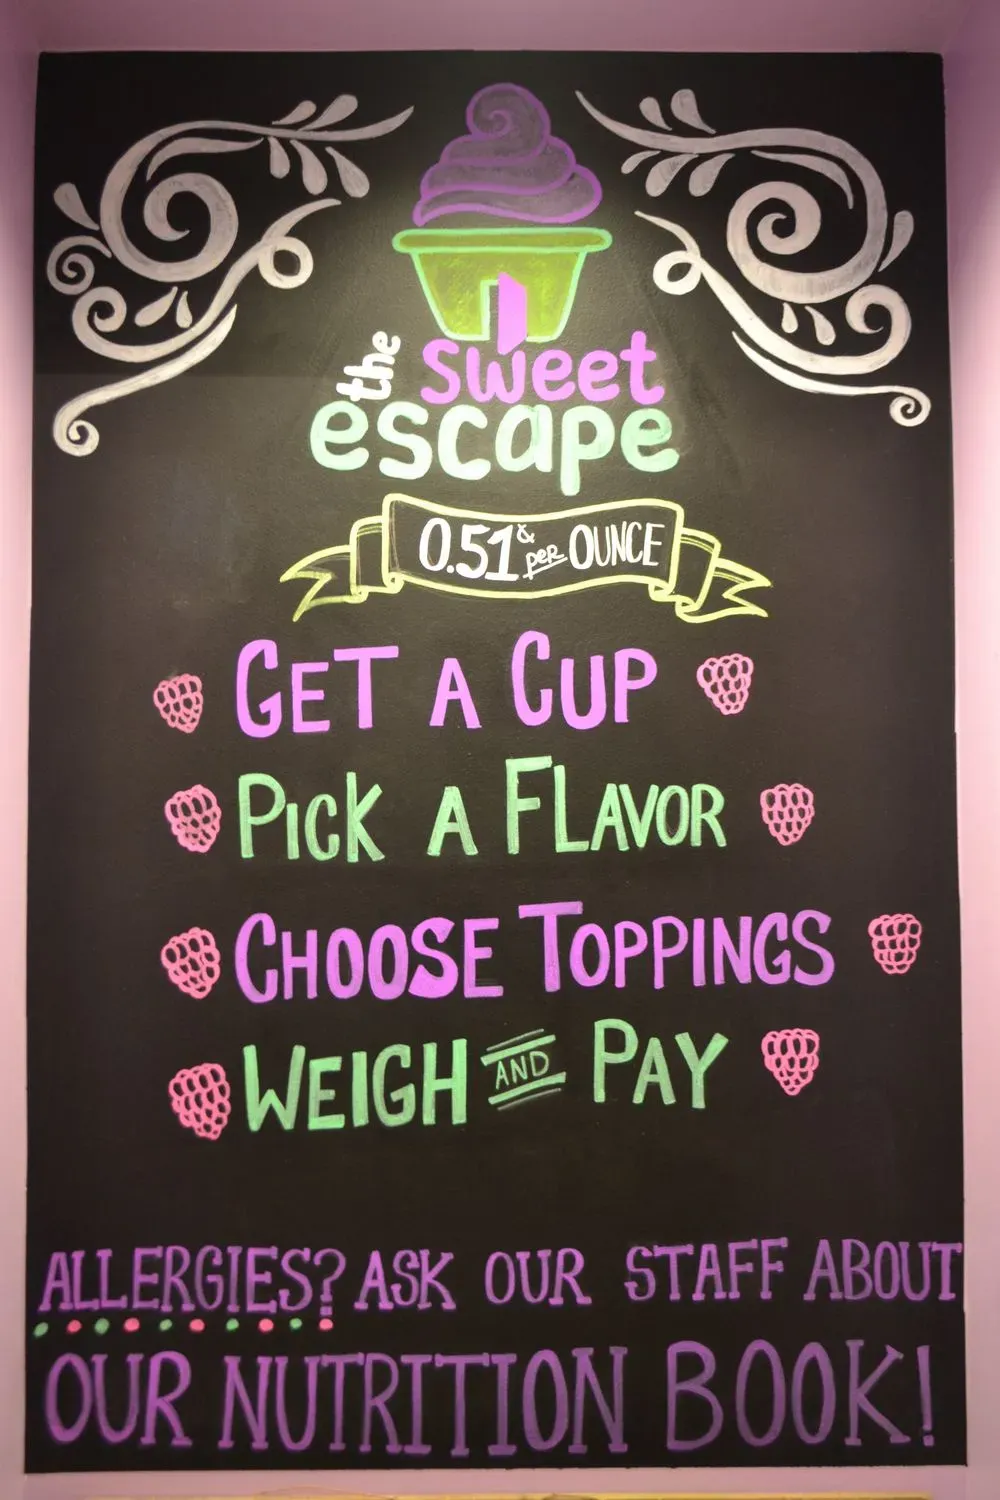 the sweet
escape
0.51¢ per OUNCE
GET A CUP
PICK A FLAVOR
CHOOSE TOPPINGS
WEIGH AND PAY
ALLERGIES? ASK OUR STAFF ABOUT
OUR NUTRITION BOOK!